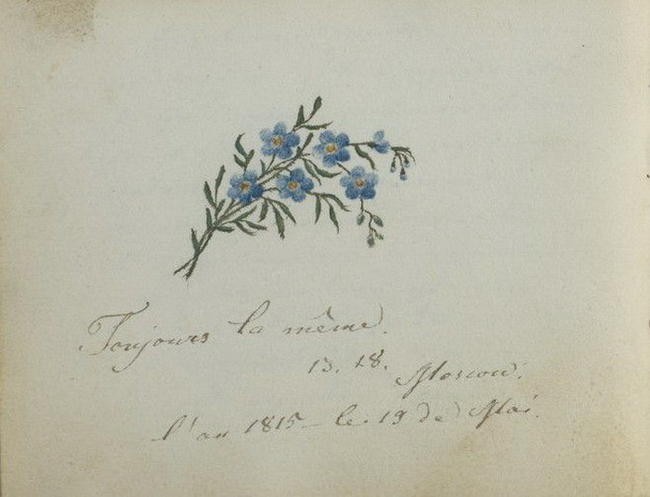 Toujours la même.
13. 18.
Moscou.
l'an 1815 – le. 19 de Mai.